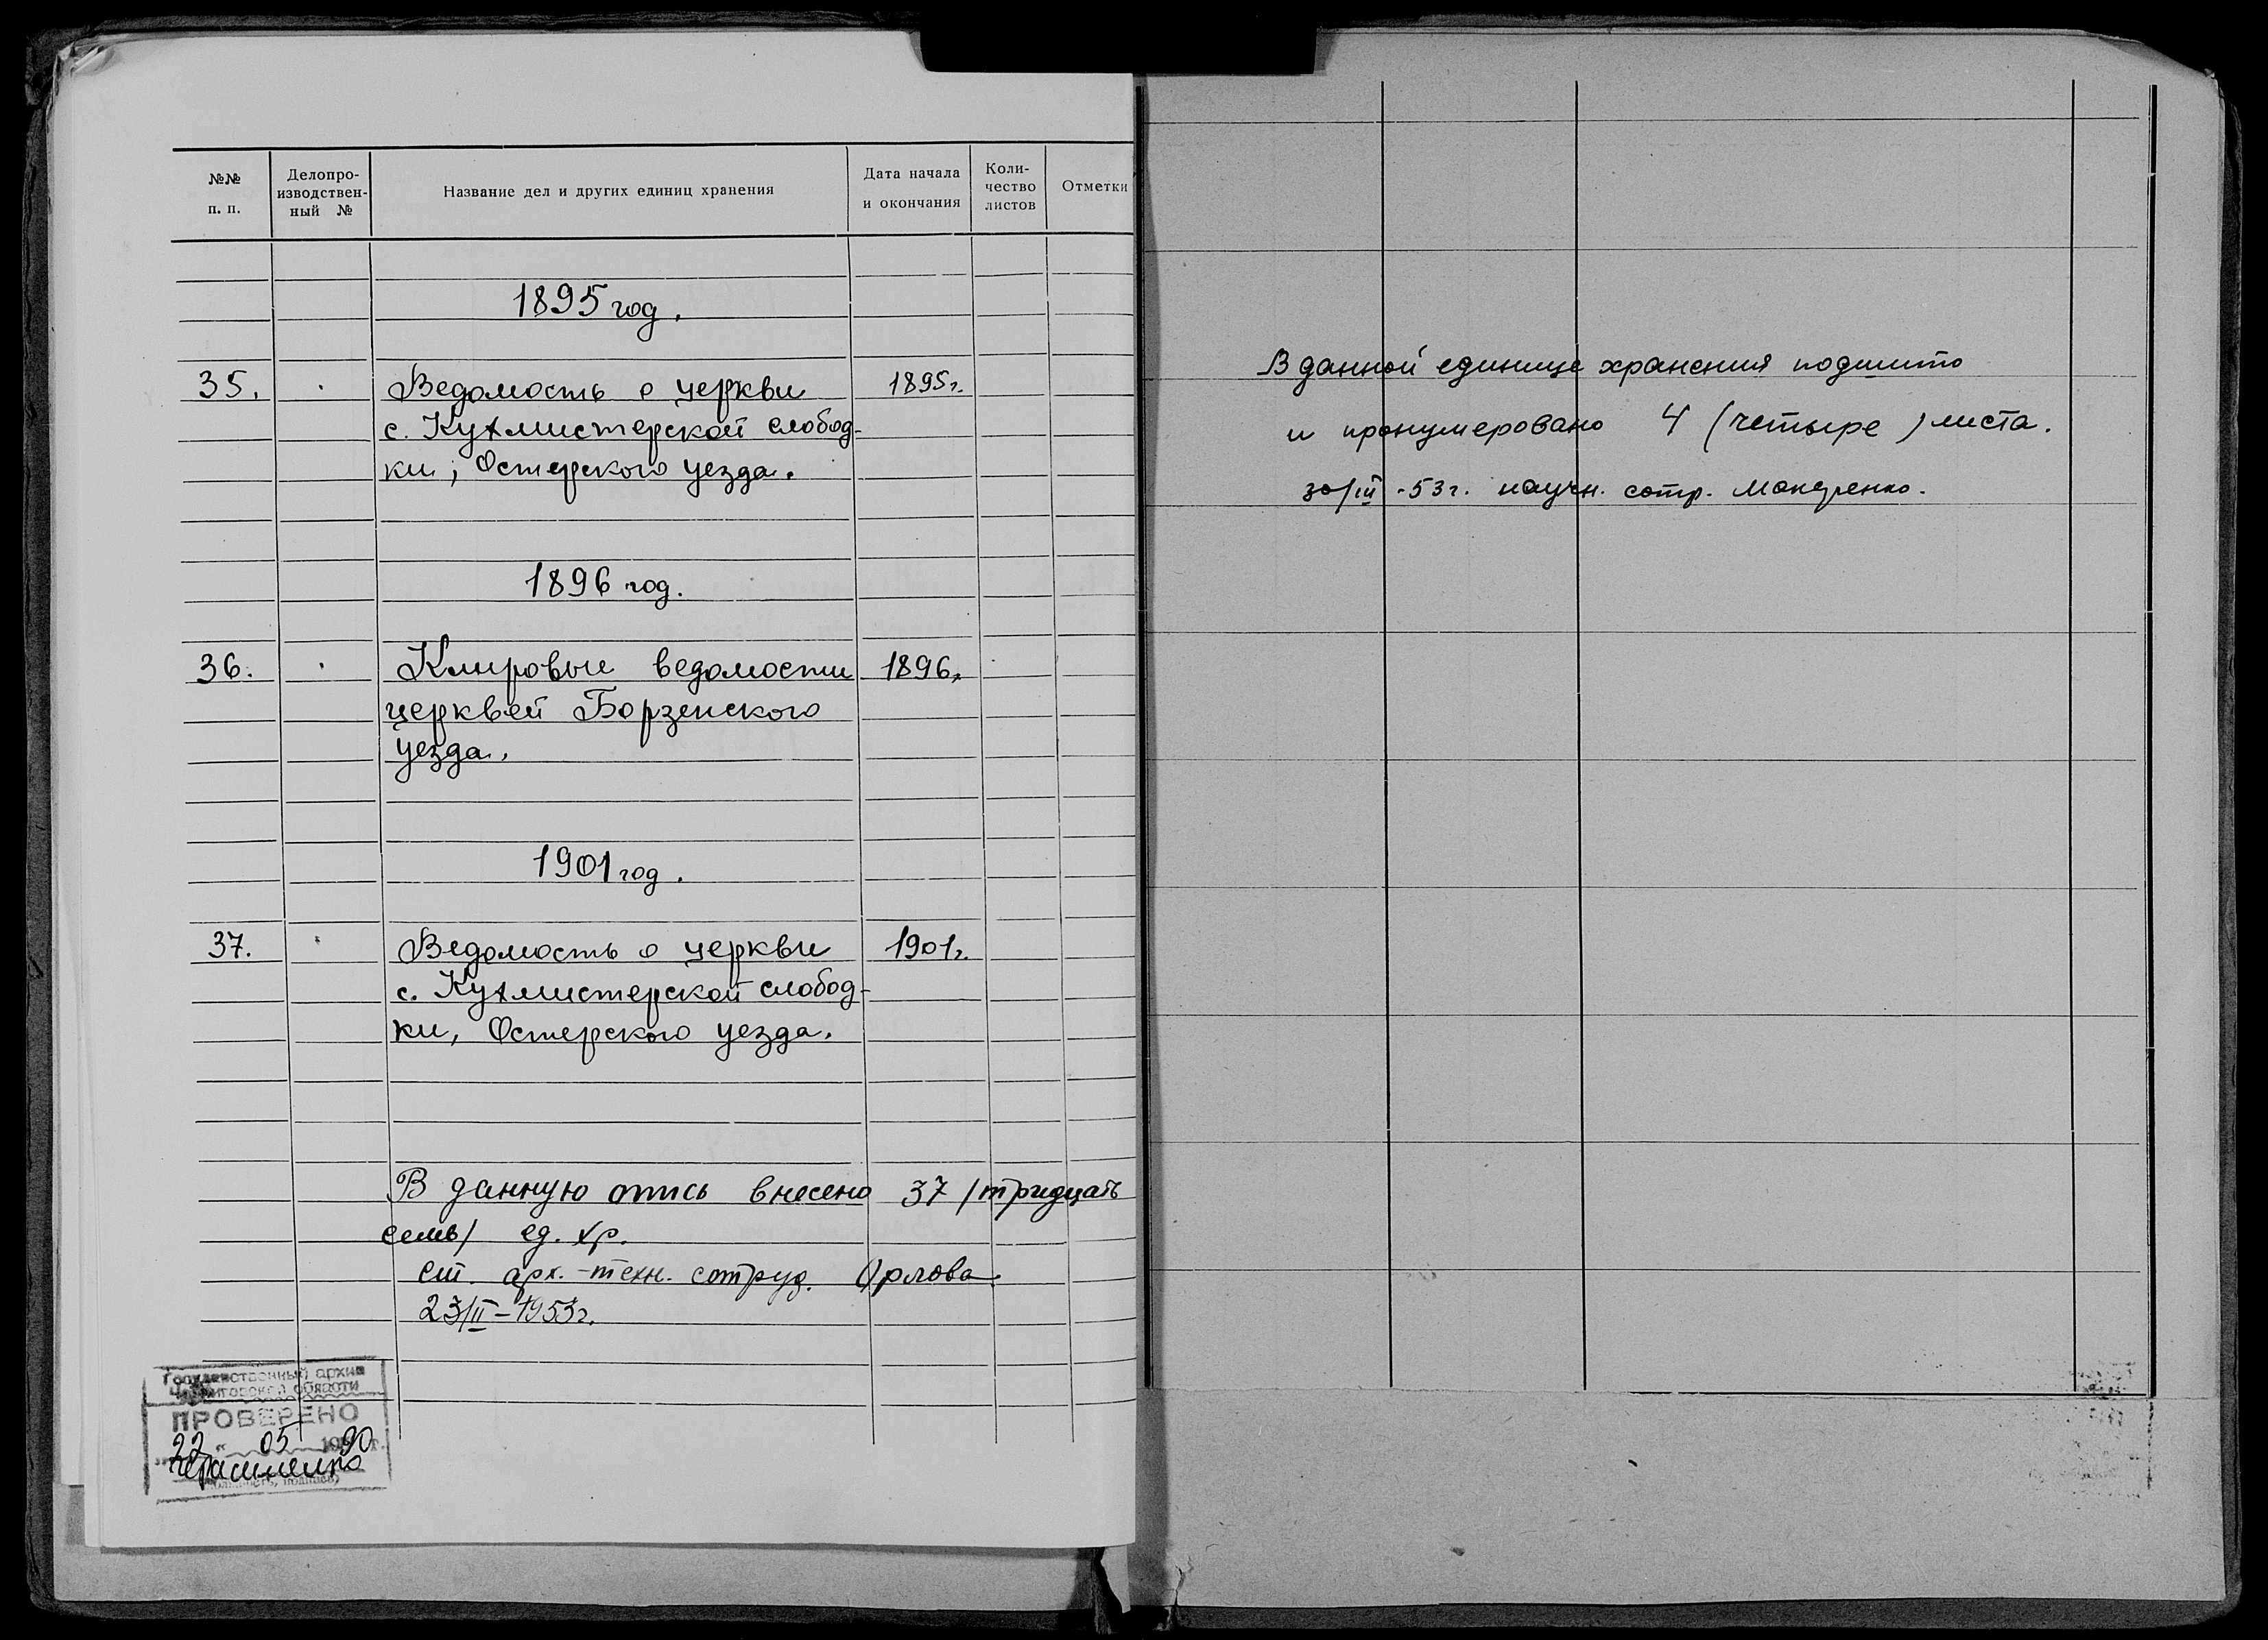 №№ п. п.
Делопро-
изводствен-
ный №
Название дел и других единиц хранения
Дата начала
и окончания
Коли-
чество
листов
Отметки
1895 год.
35. Ведомость о церкви 1895г.
с. Кухмистерской слобод-
ки, Остерского уезда.
1896 год.
36. Клировые ведомости 1896г.
церквей Борзенского
уезда.
1901 год.
37. Ведомость о церкви 1901г.
с. Кухмистерской слобод-
ки, Остерского уезда.
В данную опись внесено 37 /тридцать
семь/ ед. хр.
ст. арх.-техн. сотруд. Орлова.
23/II-1953г.
Государственный архив
Черниговской области
ПРОВЕРЕНО
22 " 05 1990 г.
В данной единице хранения подшито
и пронумеровано 4 (четыре) листа.
30/III-53г. научн. сотр. Макаренко.